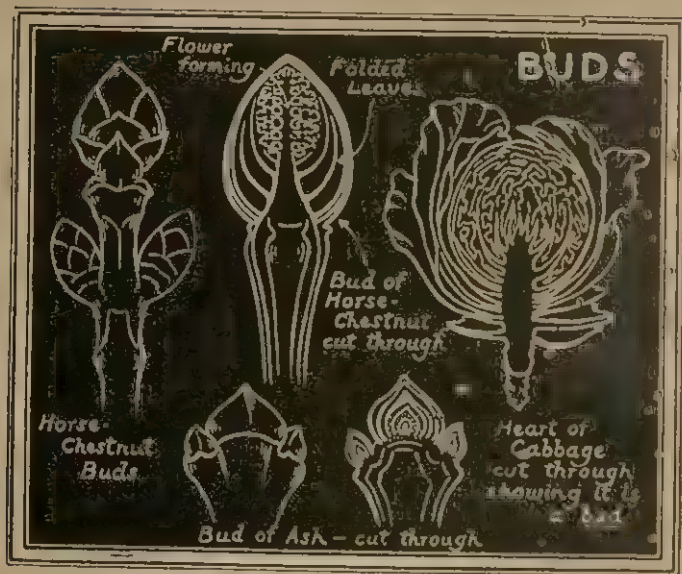 BUDS
Flower
forming
Folded
Leaves
Bud of
Horse-
Chestnut
cut through
Horse-
Chestnut
Buds
Heart of
Cabbage
cut through
showing it is
a bud
Bud of Ash - cut through